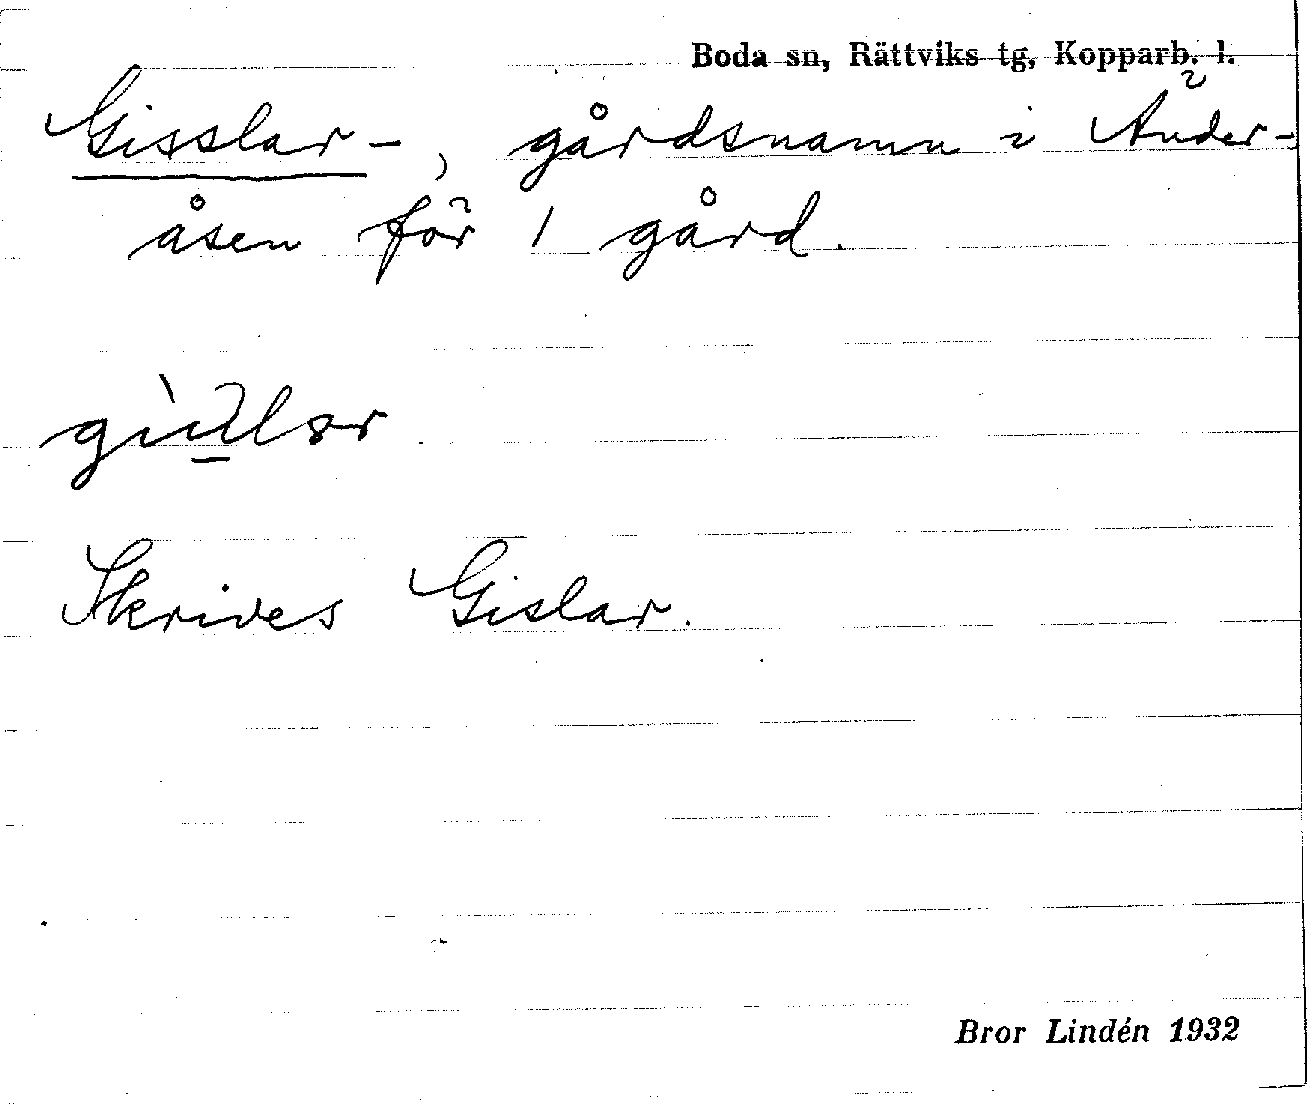 Boda sn, Rättviks tg, Kopparb. l.
Gisslar-, gårdsnamn i Änder-
åsen för 1 gård.
Skrives Gislar.
Bror Lindén 1932